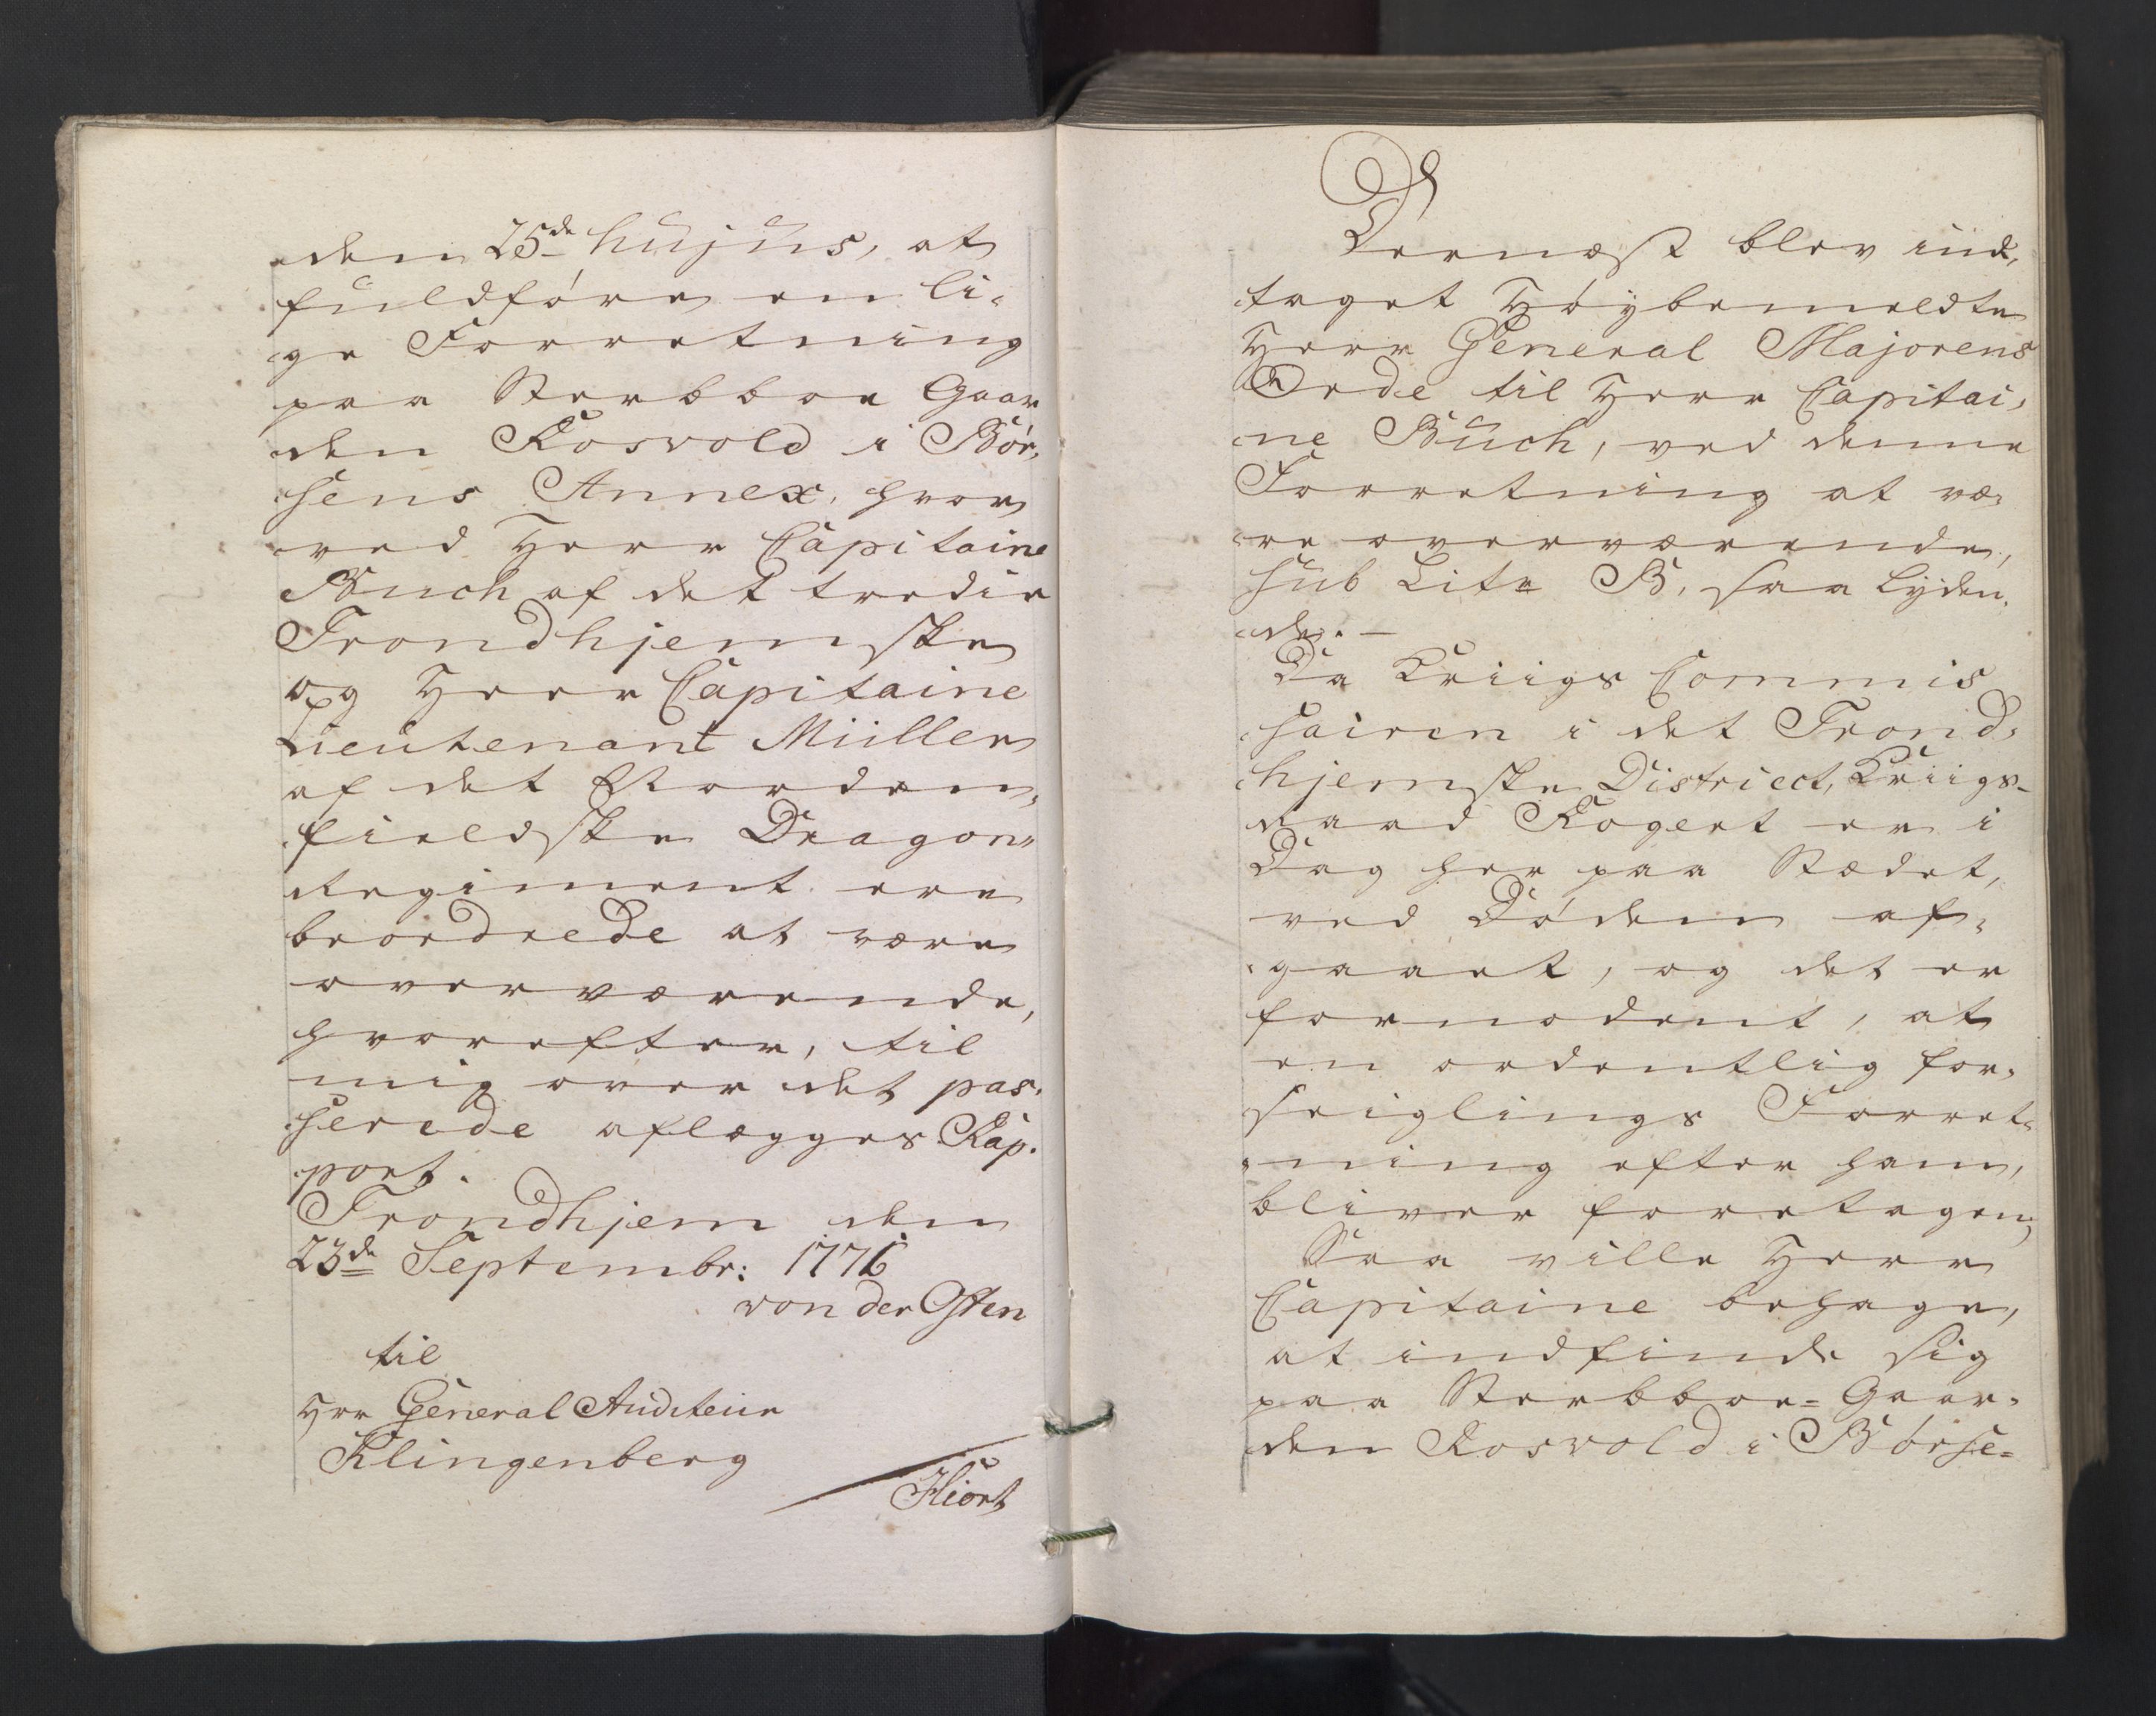 den 25de hujus, at
fuldføre en li-
ge Forretning
paa Sterbboe Gaar
den Rosvold i Bør,
sens Annex, hvor
ved Herr Capitaine
Buch af det tredie
Trondhjemske
og Herr Capitaine
Lieutenant Müller
af det Norden,
fieldske Dragon-
Regiment ere
beordrede at være
overværende,
hvorefter, til
mig over det pas-
serede aflægges Rap-
port.
Trondhjem den
23de Septembr: 1776
von der Osten
til
Hrr General Auditeur
Klingenberg
Hiort
Dernæst blev ind,
taget Høybemeldte
Herr General Majorens
Ordre til Herr Capitai,
ne Buch, ved denne
Forretning at væ-
re overværende,
sub Litr B, saa lyden,
de. —
Da Kriigs Commis
sairen i det Trond-
hjemske District, Kriigs-
raad Rogert er i
Dag her paa Stædet,
ved Døden af-
gaaet, og det er
formodent, at
en ordentlig for-
seiglings Forret-
ning efter ham,
bliver foretagen,
Saa ville Herr
Capitaine behage,
at indfinde sig
paa Sterbboe-Gaar-
den Rosvold i Børse-